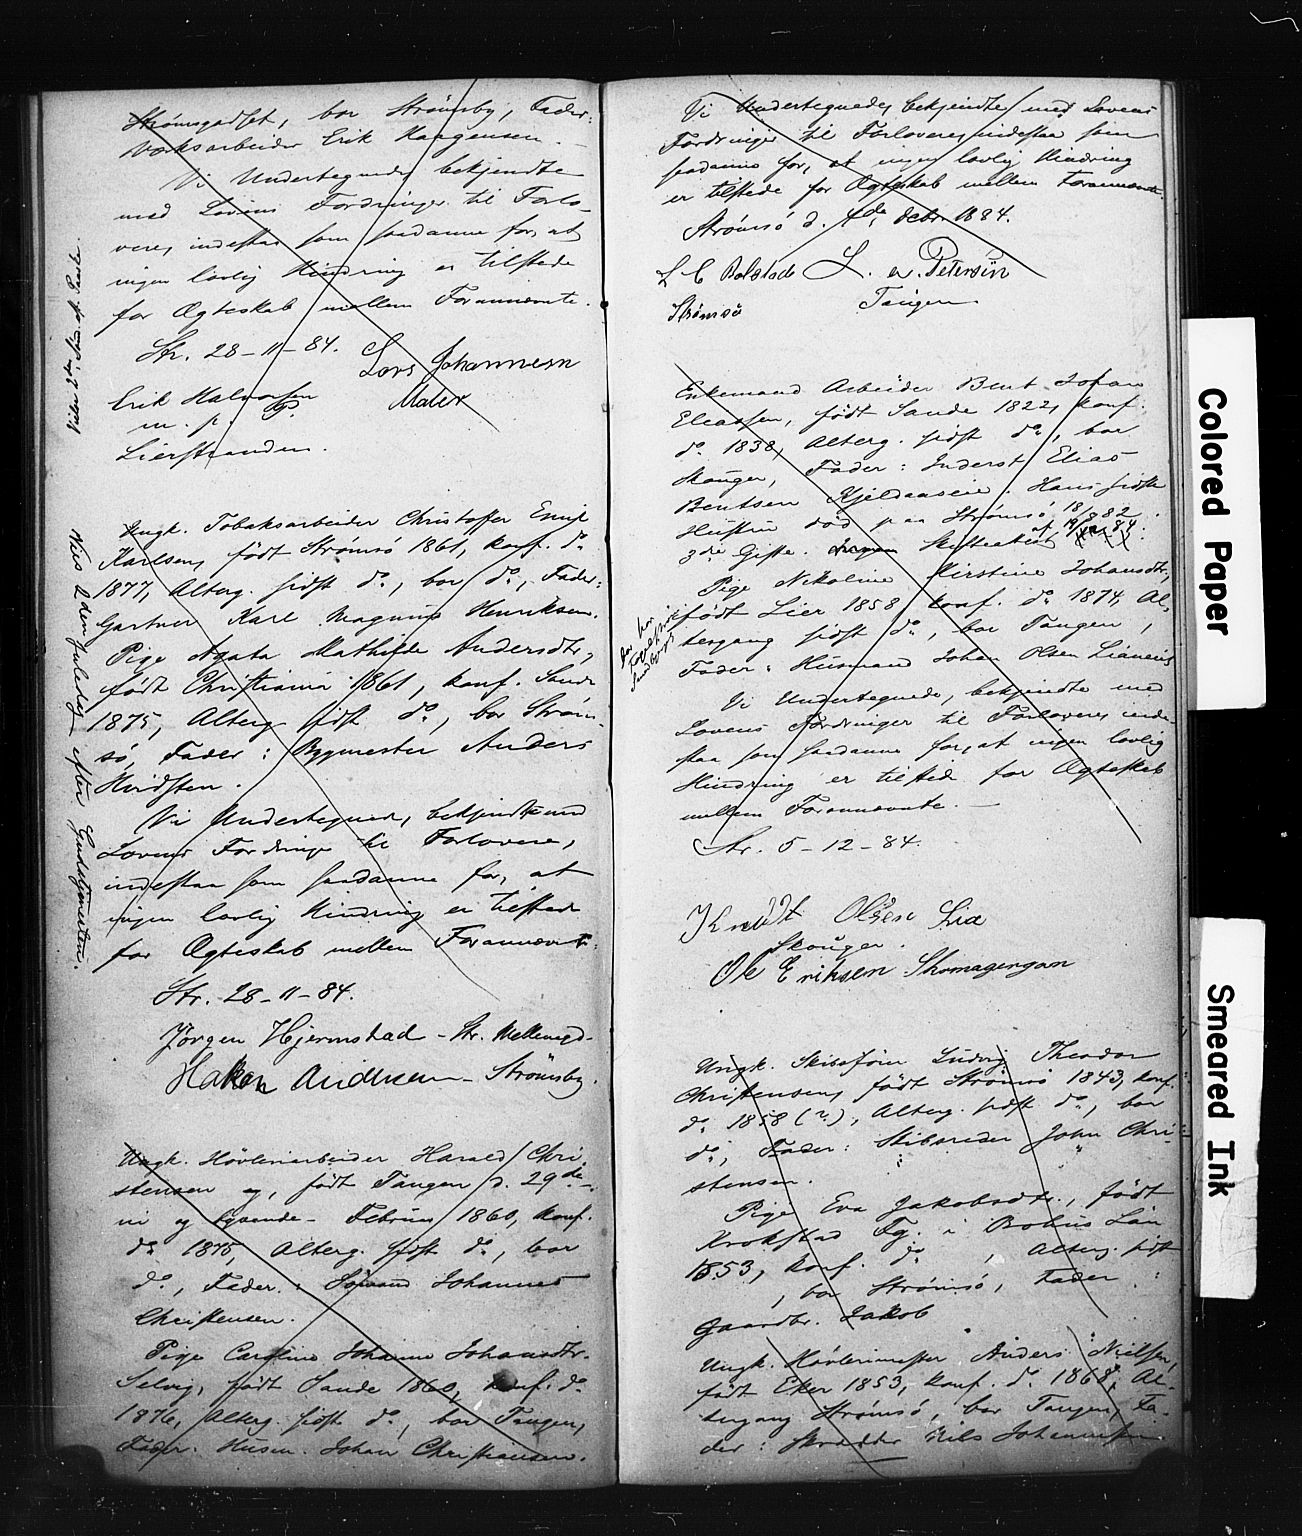 Strømsgodset, bor Strømsby, Fader:
Værksarbeider Erik Haagensen. —
Vi Undertegnede bekjendte
med Lovens Fordringer til Forlo-
vere, indestaa som saadanne for, at
ingen lovlig Hindring er tilstede
for Ægteskab mellem Forannævnte.
Str. 28-11-84. Lars Johannesen
Maler
Erik Halvorsen
m. p.
Lierstranden.
Ungk. Tobaksarbeider Christoffer Emil
Karlsen, født Strømsø 1861, konf. do
1877, Alterg. sidst do, bor do, Fader:
Gartner Karl Magnus Henriksen.
Pige Agata Mathilde Andersdtr,
født Christiania 1861, konf. Sande
1875, Alterg. sidst do, bor Strøm-
sø, Fader: Bygmester Anders
Hvidsten.
Vi Undertegnede, bekjendte med
Lovens Fordringer til Forlovere,
indestaa som saadanne for, at
ingen lovlig Hindring er tilstede
for Ægteskab mellem Forannævnte.
Str. 28-11-84.
Jørgen Hjermstad - Str.
Haken Andersen - Strømsby.
Vies 2den Juledag efter Gudstjenesten.
Ungk. Høvleriarbeider Harald Chri-
stensen, født Tangen d. 29de -
ni og tyvende - Februar 1860, konf.
do 1875, Alterg. sidst do, bor
do, Fader: Sømand Johannes
Christensen.
Pige Caroline Johanne Johansdtr.
Selvig, født Sande 1860, konf. do
1876, Alterg. sidst do, bor Tangen,
Fader: Husm. Johan Christiansen.
Vi Undertegnede, bekjendte med Lovens
Fordringer til Forlovere, indestaa som
saadanne for, at ingen lovlig Hindring
er tilstede for Ægteskab mellem Forannævnte
Strømsø d. 4de Decbr. 1884.
L C Bolstad L. Petersen
Strømsø Tangen
Enkemand Arbeider Bent Johan
Eleassen, født Sande 1822, konf.
do 1838, Alterg. sidst do, bor
Skouger, Fader: Inderst Elias
Bentsen Kjeldaaseie. Hans sidste
Hustru død paa Strømsø 18/8 82.
3die Gifte. Skifteattest af
Pige Nikoline Kirstine Johansdtr,
født Lier 1858, konf. do 1874, Al-
tergang sidst do, bor Tangen,
Fader: Husmand Johan Olsen Lianeie
Vi Undertegnede, bekjendte med
Lovens Fordringer til Forlovere, inde-
staa som saadanne for, at ingen lovlig
Hindring er tilstede for Ægteskab
mellem Forannævnte. —
Str. 5-12-84.
Knudt Olsen Lia
Skouger.
Ole Eriksen Skomagergan
Ungk. Skibsfører Ludvig Theodor
Christensen, født Strømsø 1843, konf.
do 1858 (?), Alterg. sidst do, bor
do, Fader: Skibsreder John Chri-
stensen.
Pige Eva Jakobsdtr., født
Krokstad Fg. i Bohus Län
1853, konf. do, Alterg. sidst
, bor Strømsø, Fader:
Gaardbr. Jakob
Ungk. Høvlerimester Anders Nielsen,
født Eker 1853, konf. do 1868, Al-
tergang Strømsø, bor Tangen, Fa-
der: Skrædder Nils Johannesen.
Colored Paper
Smeared Ink